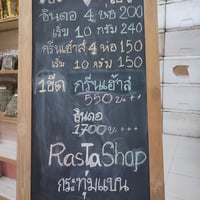 อินดอ 4 ห่อ 200
เริ่ม 10 กรัม 240
กรีนเฮ้าส์ 4 ห่อ 150
เริ่ม 10 กรัม 150
1 ขีด กรีนเฮ้าส์
550 บ.+++
อินดอ
1700 บ.+++
RasTaShop
กระทุ่มแบน